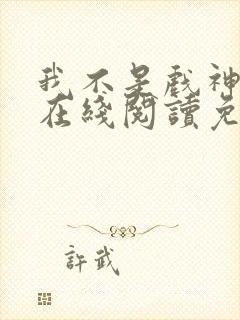 我不是戲神
在綫閱讀免
許武